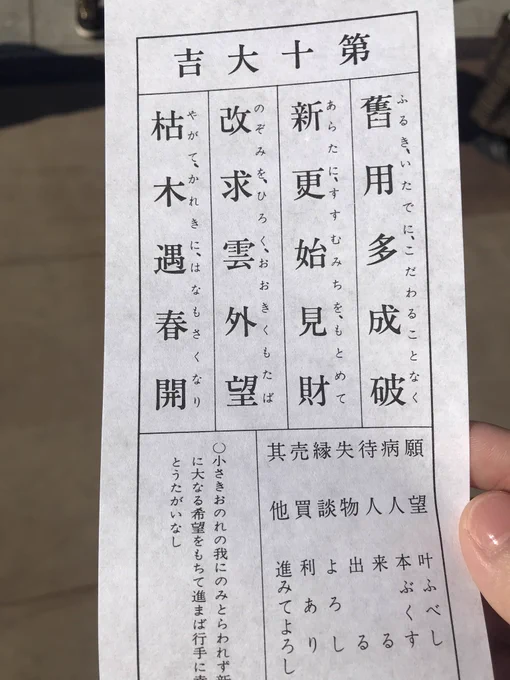 第十大吉
舊用多成破
ふるき、いたでに、こだわることなく
新更始見財
あらたに、すすむみちを、もとめて
改求雲外望
のぞみを、ひろく、おおきくもたば
枯木遇春開
やがて、かれきに、はなもさくなり
願望 叶ふべし
病人 本ぶくす
待人 来る
失物 出る
縁談 よろし
売買 利あり
其他 進みてよろし
〇小さきおのれの我にのみとらわれず新
に大なる希望をもちて進まば行手に幸
とうたがいなし